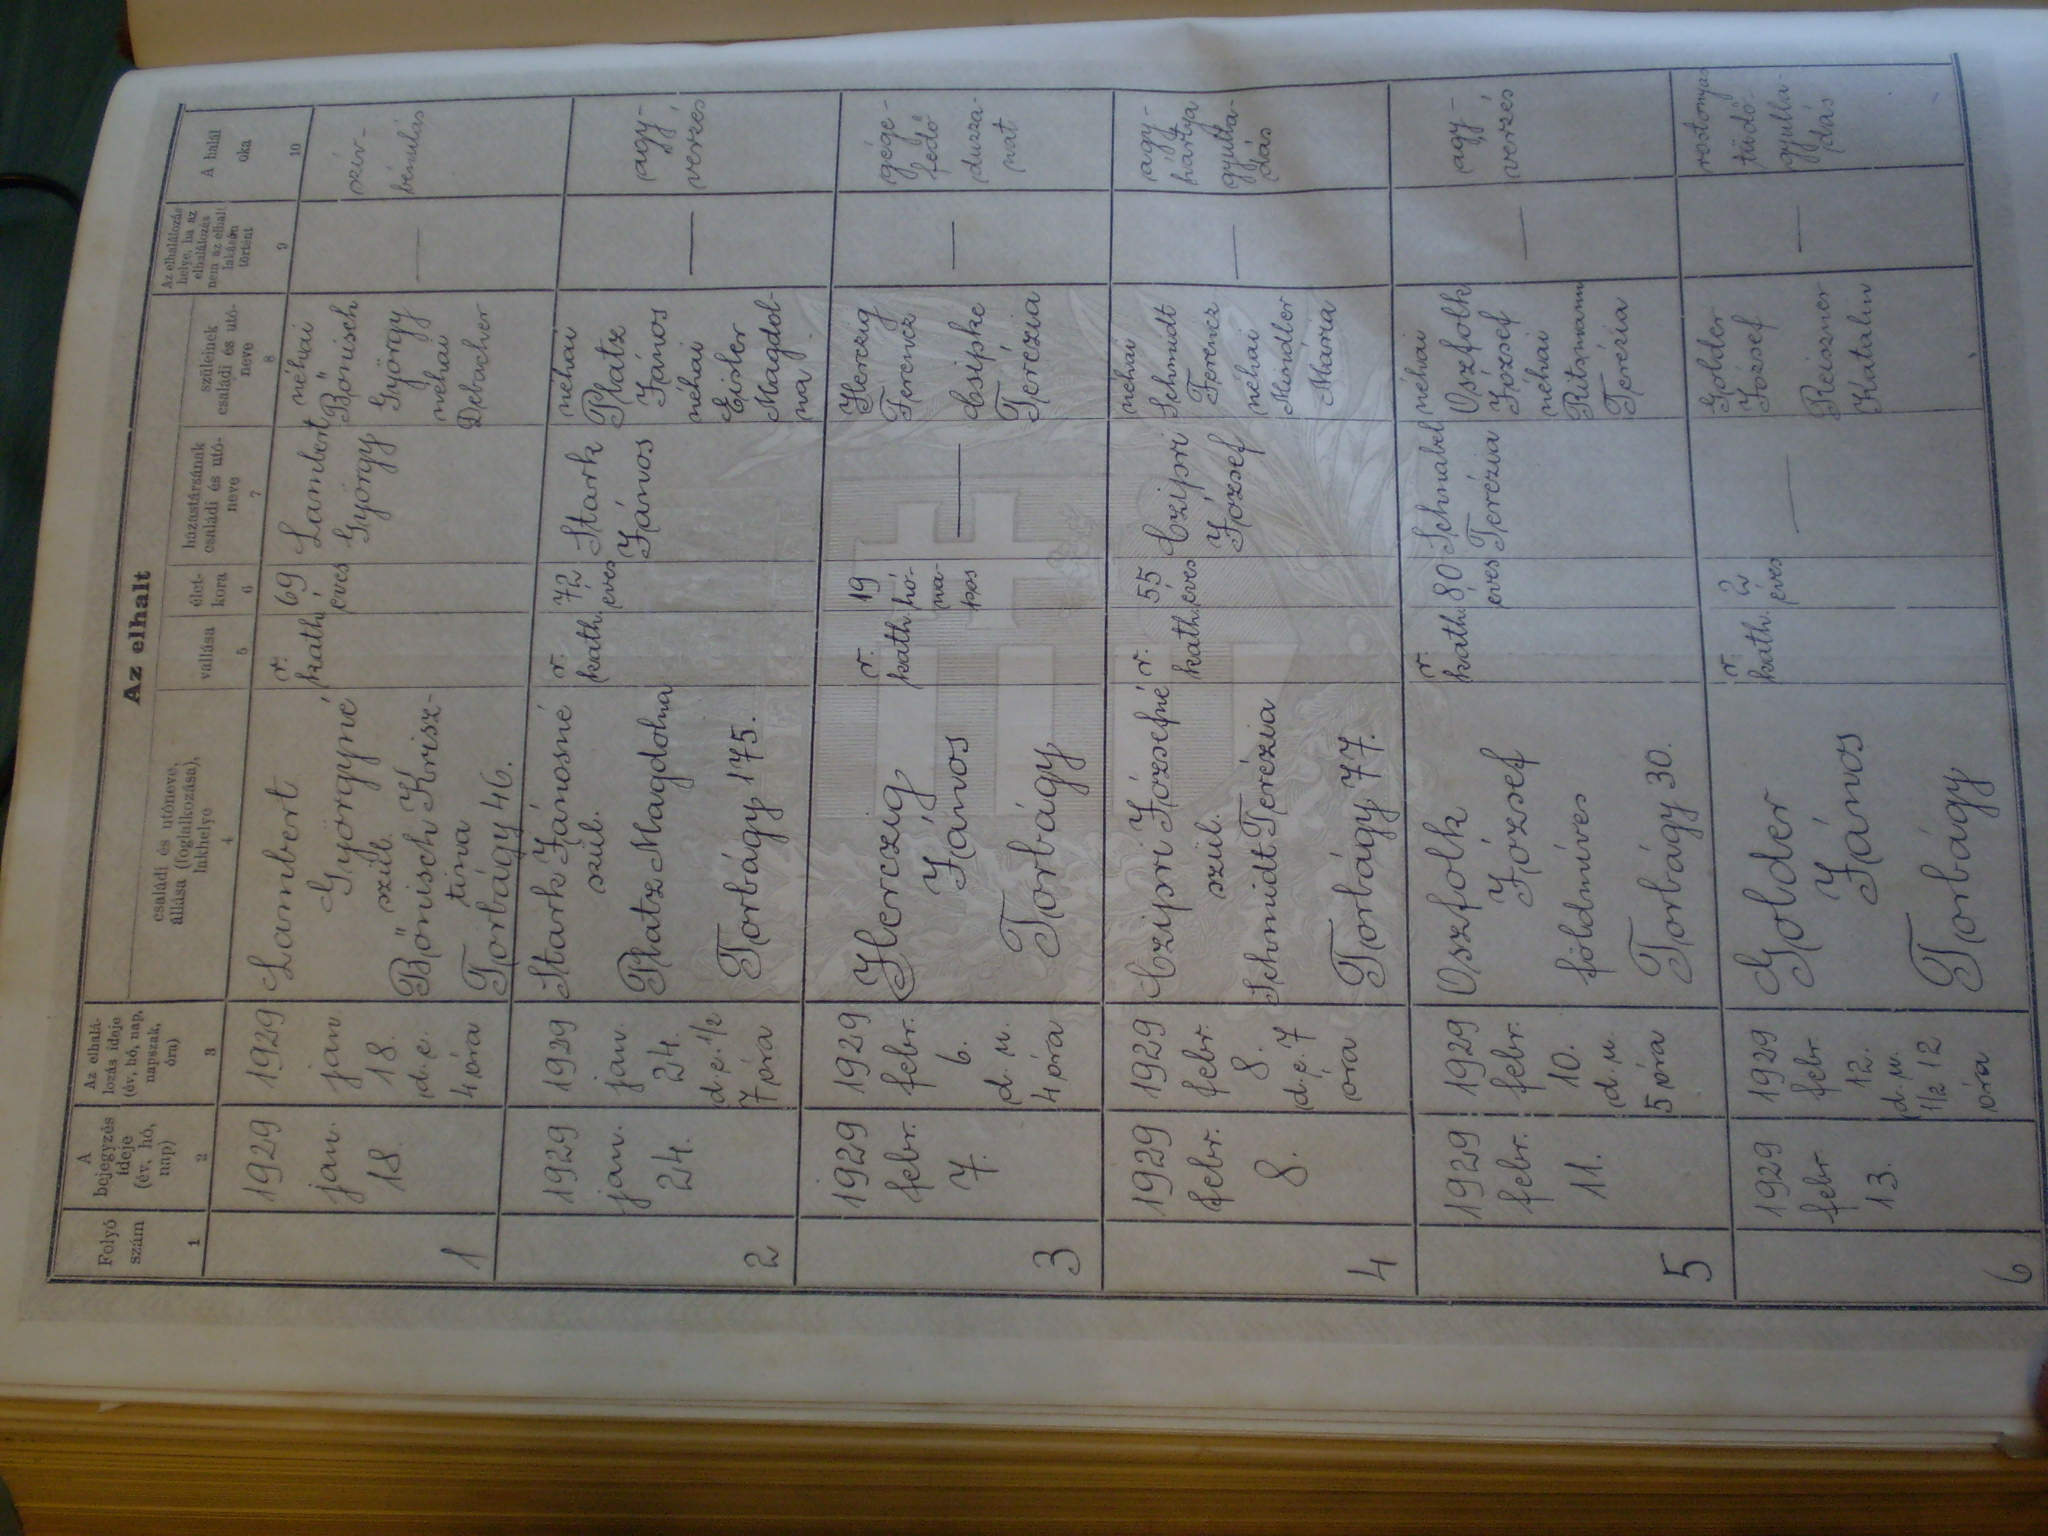 Az elhalt
Folyó
szám
A
bejegyzés
ideje
(év, hó,
nap)
Az elhalá-
lozás ideje
(év, hó, nap,
napszak,
óra)
családi és utóneve,
állása (foglalkozása),
lakhelye
vallása
élet-
kora
házastársának
családi és utó-
neve
szüleinek
családi és utó-
neve
Az elhalálozás
helye, ha az
elhalálozás
nem az elhalt
lakásán
történt
A halál
oka
1
2
3
4
5
6
7
8
9
10
1
1929
jan.
18.
1929
jan
18.
d.e.
4 óra
Lambert
Györgyné
szül.
Bönisch Krisz-
tina
Torbágy 46.
r.
kath.
69
éves
Lambert
György
néhai
Bönisch
György
néhai
Debacher
—
szív-
bénulás
2
1929
jan.
24.
1929
jan.
24.
d.e. 1/2
7 óra
Stark Jánosné
szül.
Platz Magdolna
Torbágy 175.
r.
kath.
72
éves
Stark
János
néhai
Platz
János
néhai
Eisler
Magdol-
na
—
agy-
verzés
3
1929
febr.
7.
1929
febr.
6.
d. u.
4 óra
Herczig
János
Torbágy
r.
kath.
19
hó-
na-
pos
—
Herczig
Ferencz
Csipke
Terézia
—
gége-
fedő
duzza-
nat
4
1929
febr.
8.
1929
febr.
8.
d.e. 7
óra
Czipri Józsefné
szül.
Schmidt Terézia
Torbágy 77.
r.
kath.
55
éves
Czipri
József
néhai
Schmidt
Ferencz
néhai
Mindler
Mária
—
agy-
hártya
gyulla-
dás
5
1929
febr.
11.
1929
febr.
10.
d. u.
5 óra
Oszfolk
József
földmíves
Torbágy 30.
r.
kath.
80
éves
Schnabel
Terézia
néhai
Oszfolk
József
néhai
Ritzmann
Terézia
—
agy-
verzés
6
1929
febr.
13.
1929
febr.
12.
d. u.
1/2 12
óra
Golder
János
Torbágy
r.
kath.
2
éves
—
Golder
József
Reiszner
Katalin
—
rostonyás
tüdő-
gyulla-
dás